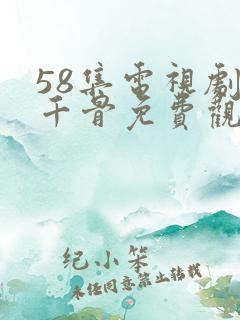 58集電視劇
千骨免費觀
纪小笨
未经同意禁止转载